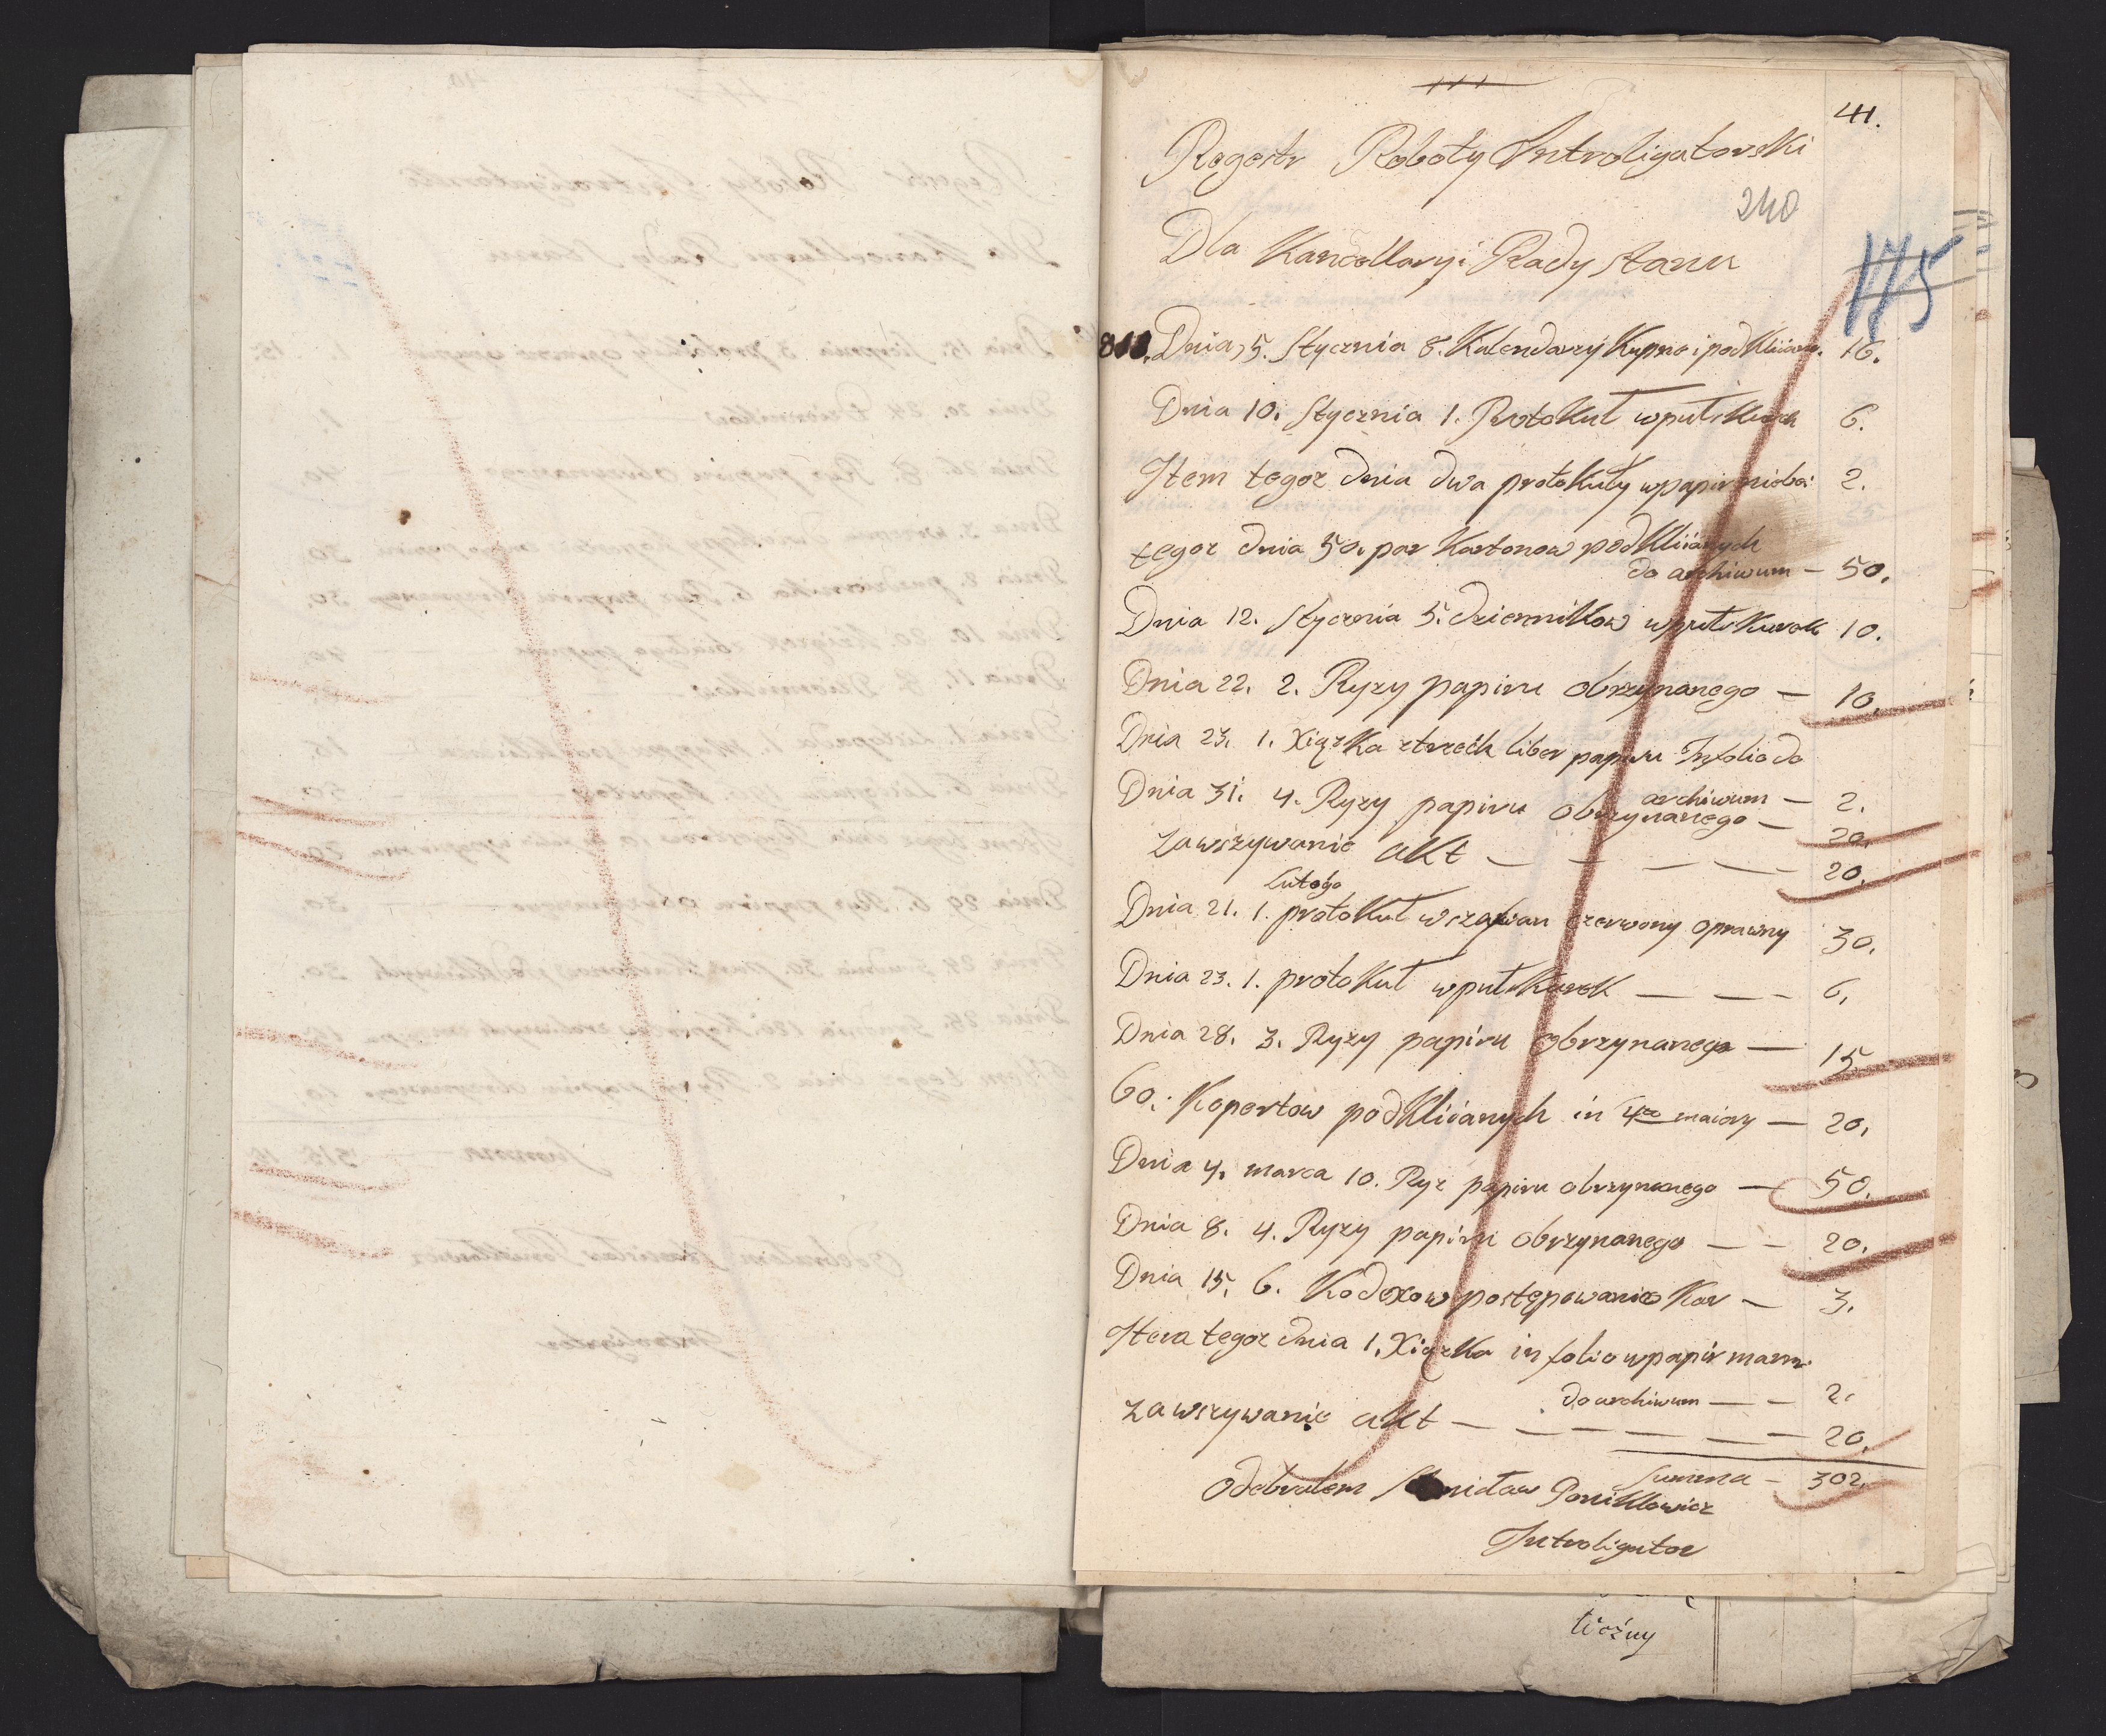 41.
Regestr Roboty Introligatorski
240
Dla Kancellaryi Rady stanu
175
Dnia 5. Stycznia 8. Kalendarzy Kupno i podkliian. 16.
Dnia 10. Stycznia 1. Protokuł wpułskurek 6.
Item tegoz dnia dwa protokuły wpapir niebi: 2.
tegoz dnia 50. par Kartonow podkliianych
do archiwum — 50.
Dnia 12. Stycznia 5. dziennikow wpułskurek 10.
Dnia 22. 2. Ryzy papiru obrzynanego — 10.
Dnia 23. 1. Xiązka ztrzech liber papiru Infolio do
archiwum — 2.
Dnia 31. 4. Ryzy papiru obrzynanego — 20.
zawszywanie akt — — — — — 20.
Lutego
Dnia 21. 1. protokuł wszafwan czerwony oprawny 30.
Dnia 23. 1. protokuł wpułskurek — — — 6.
Dnia 28. 3. Ryzy papiru obrzynanego — 15.
60. Kopertow podkliianych in 4to maiory — 20.
Dnia 4. marca 10. Ryz papiru obrzynanego — 50.
Dnia 8. 4. Ryzy papiru obrzynanego — — 20.
Dnia 15. 6. Kodexow postępowanie Kar — 3.
Item tegoz dnia 1. Xiązka in folio wpapir marm.
do archiwum — — 2.
zawszywanie akt — — — — — — — 20.
Summa — 302.
Odebrałem Stanisław Poniklowicz
Introligator